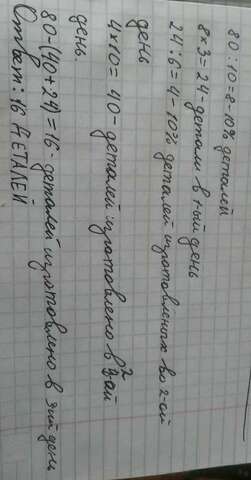 80 : 10 = 8 - 10% деталей
8*3 = 24 - детали в 1ый день
24 : 6 = 4 - 10% деталей изготовленных во 2-ой
день
4*10 = 40 - деталей изготовлено в 2ой
день.
80 - (40 + 24) = 16 - деталей изготовлено в 3ий день
Ответ: 16 ДЕТАЛЕЙ